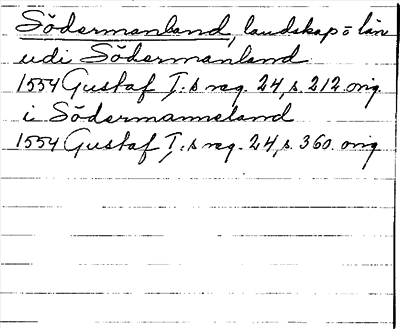 Södermanland, landskap o län
udi Södermanland
1554 Gustaf I:s reg. 24, s. 212. orig.
i Södermanneland
1554 Gustaf I:s reg. 24, s. 360. orig